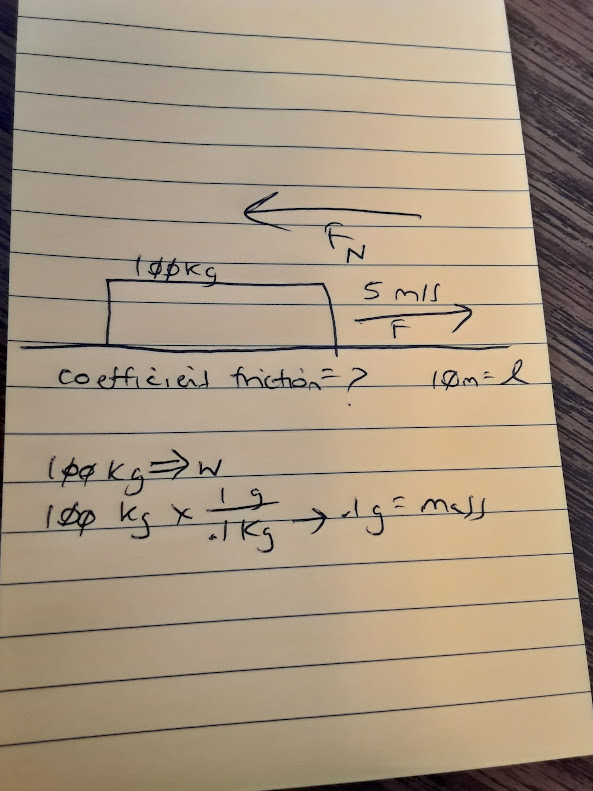 F
N
100kg
5 m/s
F
coefficient friction=?
10m=l
100kg⇒W
100 kg x 1 g / .1 kg → .1g = mass